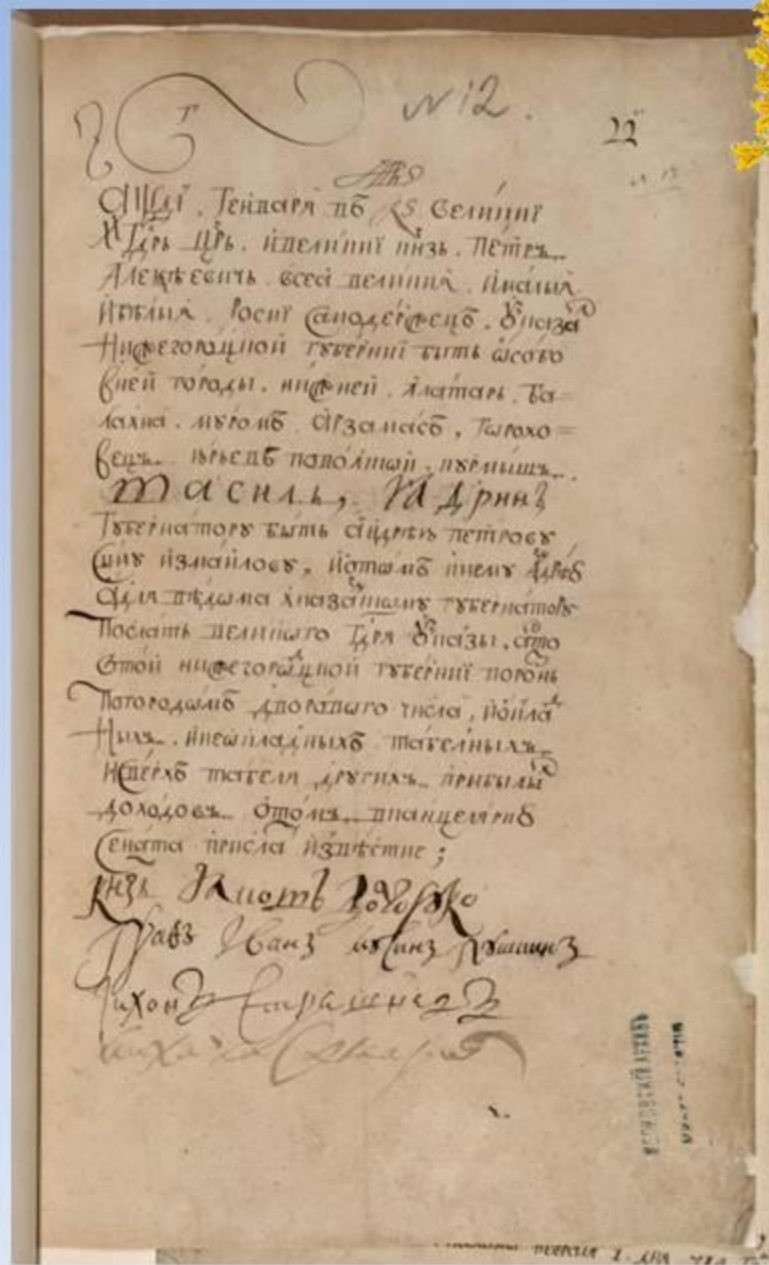 N 12.
22
҂аѱдı. Генваря въ кѕ Великиї
Гдрь Црь. ивеликиї кнзь. Петръ
Алеѯѣевичь. всеа великия. ималыя
ибѣлыя. Росиї Самодержецъ. ѹказа
Нижегороцкой губернїи быть ѡсобо
Вней городы. нижней. Алатарь. Ба=
лахна. муромъ. Арзамасъ, Горохо=
вецъ. юрьевъ поволской. курмышъ.
Василь, Ядринъ
Губернатору быть андрѣю петрову
Сыну измайлову, иотомъ кнему
Адля вѣдома книжегороцкому губернатору
Послать великого Гдря ѹказы, что
Стой нижегороцкой губернїи порознь
Погородомъ дворового числа, иокла
Ныхъ. инеокладныхъ табелныхъ
Исверхъ табеля другихъ прибылы
доходовъ отомъ вканцелярию
Сената присла извѣстие;
Кнзь Яковъ Долгоруко
Графъ Иванъ мусинъ Пушкинъ
Тихонъ Стрешневъ
Михайло Самарин
МОСКОВСКІЙ АРХИВЪ